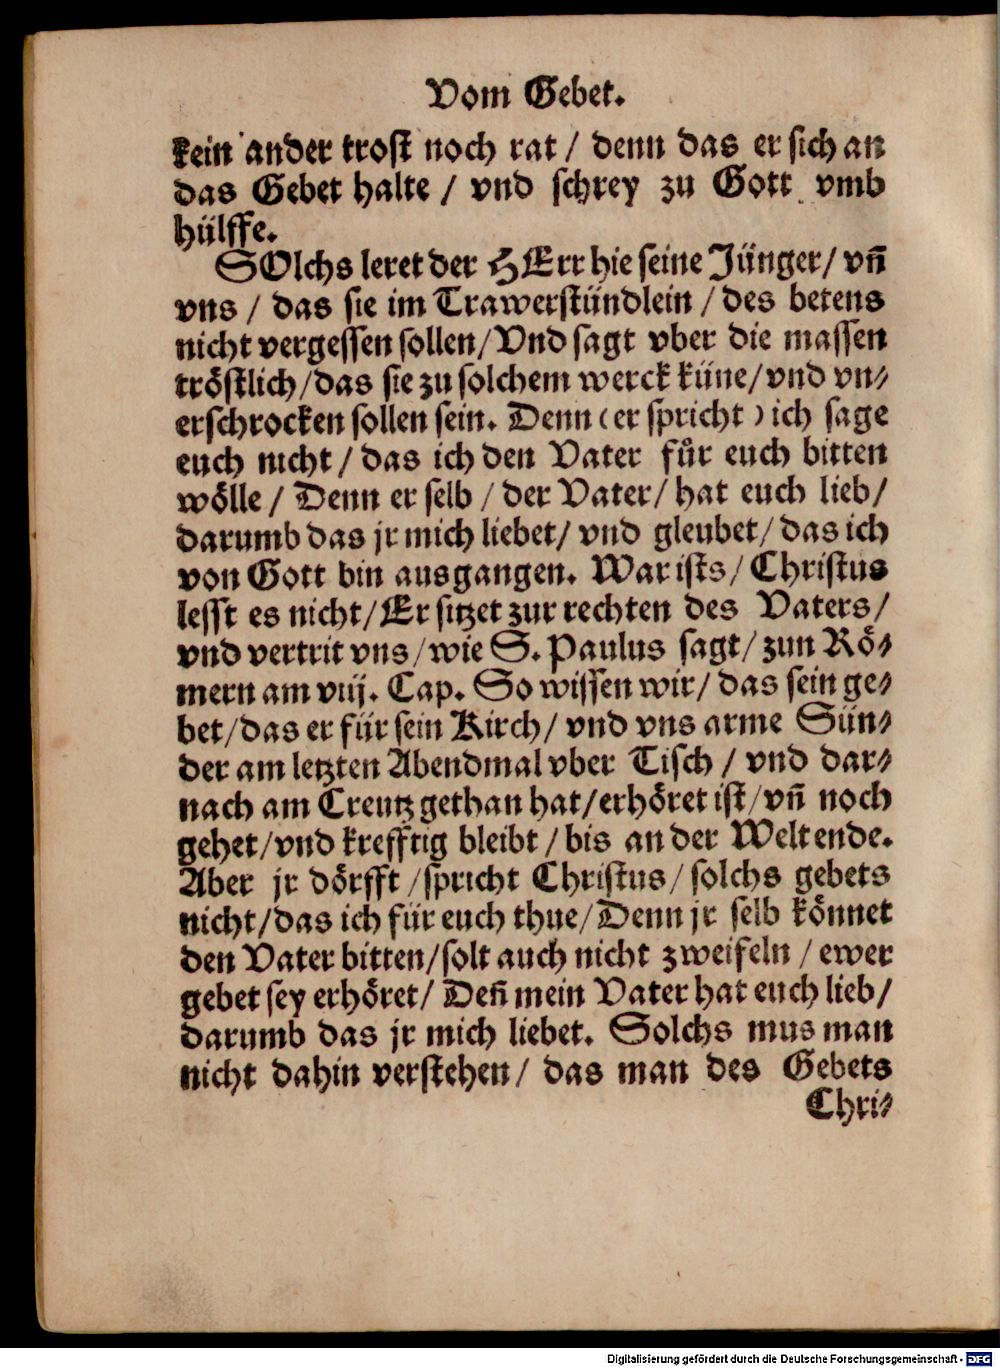 Vom Gebet.
kein ander trost noch rat / denn das er sich an
das Gebet halte / vnd schrey zu Gott vmb
hülffe.
SOlchs leret der HErr hie seine Jünger / vñ
vns / das sie im Trawerstündlein / des betens
nicht vergessen sollen / Vnd sagt vber die massen
tröstlich / das sie zu solchem werck küne / vnd vn⸗
erschrocken sollen sein. Denn (er spricht) ich sage
euch nicht / das ich den Vater fůr euch bitten
wölle / Denn er selb / der Vater / hat euch lieb /
darumb das jr mich liebet / vnd gleubet / das ich
von Gott bin ausgangen. War ists / Christus
lesst es nicht / Er sitzet zur rechten des Vaters /
vnd vertrit vns / wie S. Paulus sagt / zun Rö⸗
mern am viij. Cap. So wissen wir / das sein ge⸗
bet / das er für sein Kirch / vnd vns arme Sün⸗
der am letzten Abendmal vber Tisch / vnd dar⸗
nach am Creutz gethan hat / erhöret ist / vñ noch
gehet / vnd krefftig bleibt / bis an der Welt ende.
Aber jr dörfft / spricht Christus / solchs gebets
nicht / das ich für euch thue / Denn jr selb könnet
den Vater bitten / solt auch nicht zweifeln / ewer
gebet sey erhöret / Deñ mein Vater hat euch lieb /
darumb das jr mich liebet. Solchs mus man
nicht dahin verstehen / das man des Gebets
Chri⸗
Digitalisierung gefördert durch die Deutsche Forschungsgemeinschaft - DFG